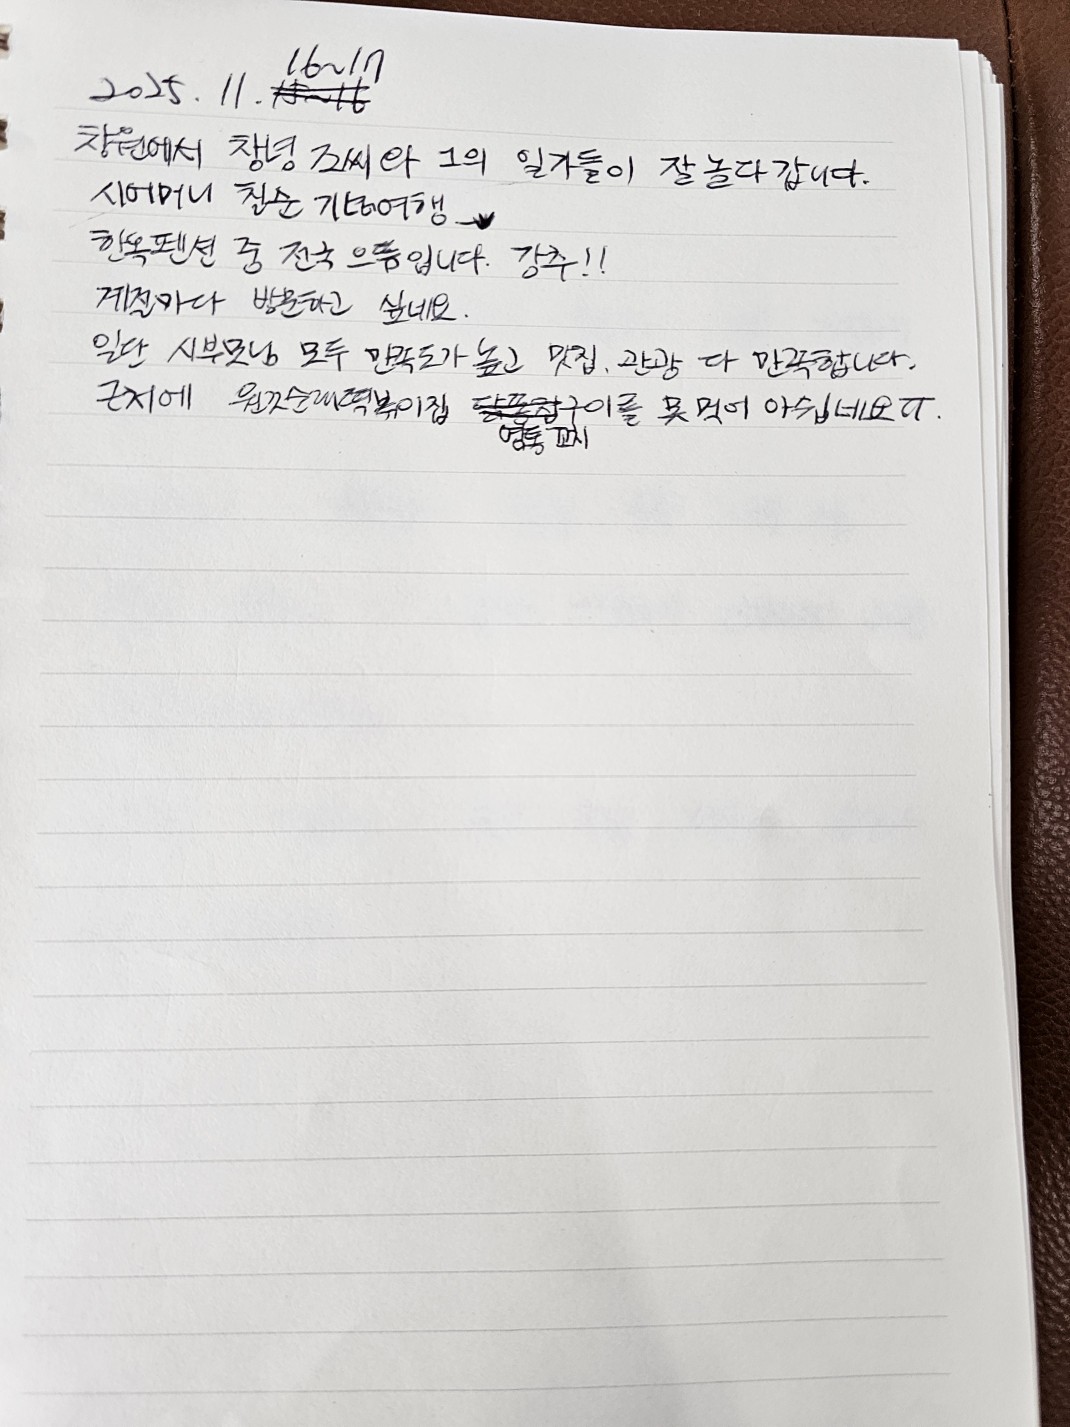 16~17
2025. 11. 15~16
창원에서 창녕 조씨와 그의 일가들이 잘 놀다 갑니다.
시어머니 칠순 기념여행
한옥펜션 중 전국 으뜸입니다. 강추!!
계절마다 방문하고 싶네요.
일단 시부모님 모두 만족도가 높고 맛집, 관광 다 만족합니다.
근처에 원조순대떡볶이집 구이를 못 먹어 아쉽네요ㅠ.
염통 꼬치